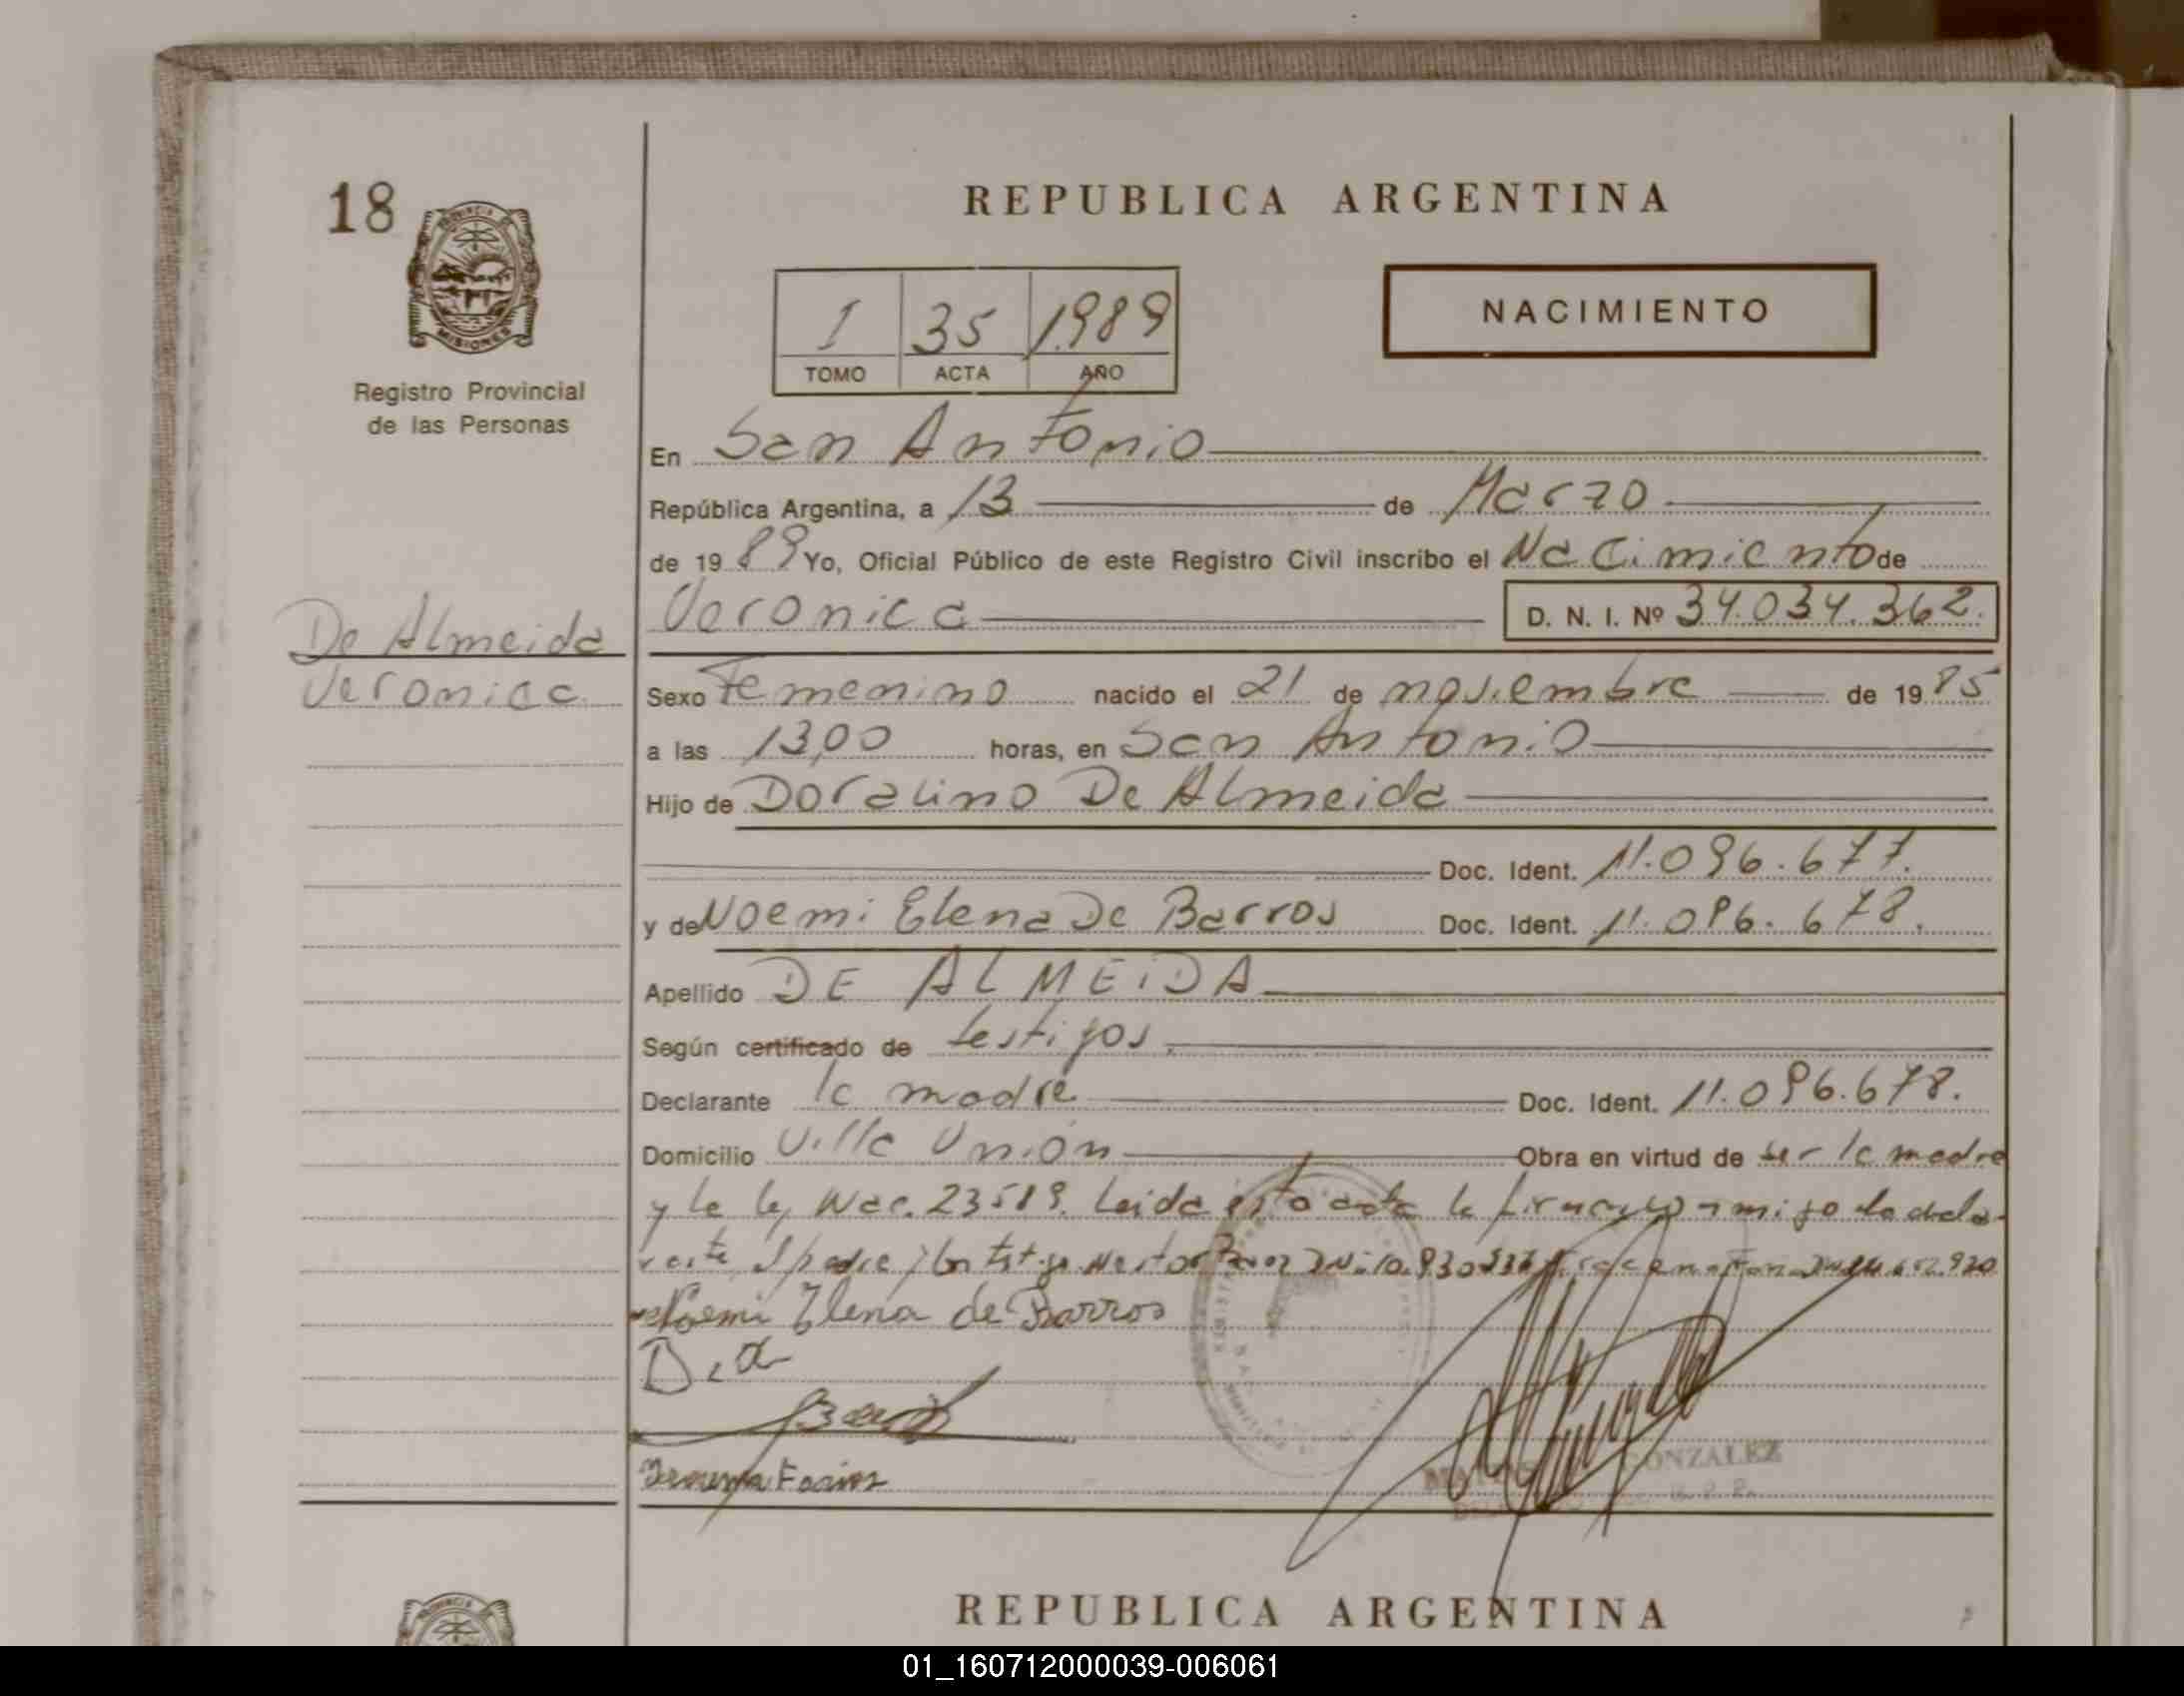 18
REPUBLICA ARGENTINA
PROVINCIA DE
MISIONES
Registro Provincial
de las Personas
1 35 1989
TOMO ACTA AÑO
NACIMIENTO
En San Antonio
República Argentina, a 13 de Marzo
de 1989 Yo, Oficial Público de este Registro Civil inscribo el Nacimiento de
Veronica D. N. I. Nº 34.034.362.
De Almeida
Veronica
Sexo Femenino nacido el 21 de noviembre de 1985
a las 13,00 horas, en San Antonio
Hijo de Doralino De Almeida
Doc. Ident. 11.096.677.
y de Noemi Elena De Barros Doc. Ident. 11.096.678.
Apellido DE ALMEIDA
Según certificado de testigos.
Declarante la madre Doc. Ident. 11.096.678.
Domicilio Villa Unión Obra en virtud de ser la madre
y la ley Nac. 23519. Leida esta acta la conmigo la decla-
rante el padre y los testigos Nestor
Noemi Elena de Barros
GONZALEZ
REPUBLICA ARGENTINA
01_160712000039-006061